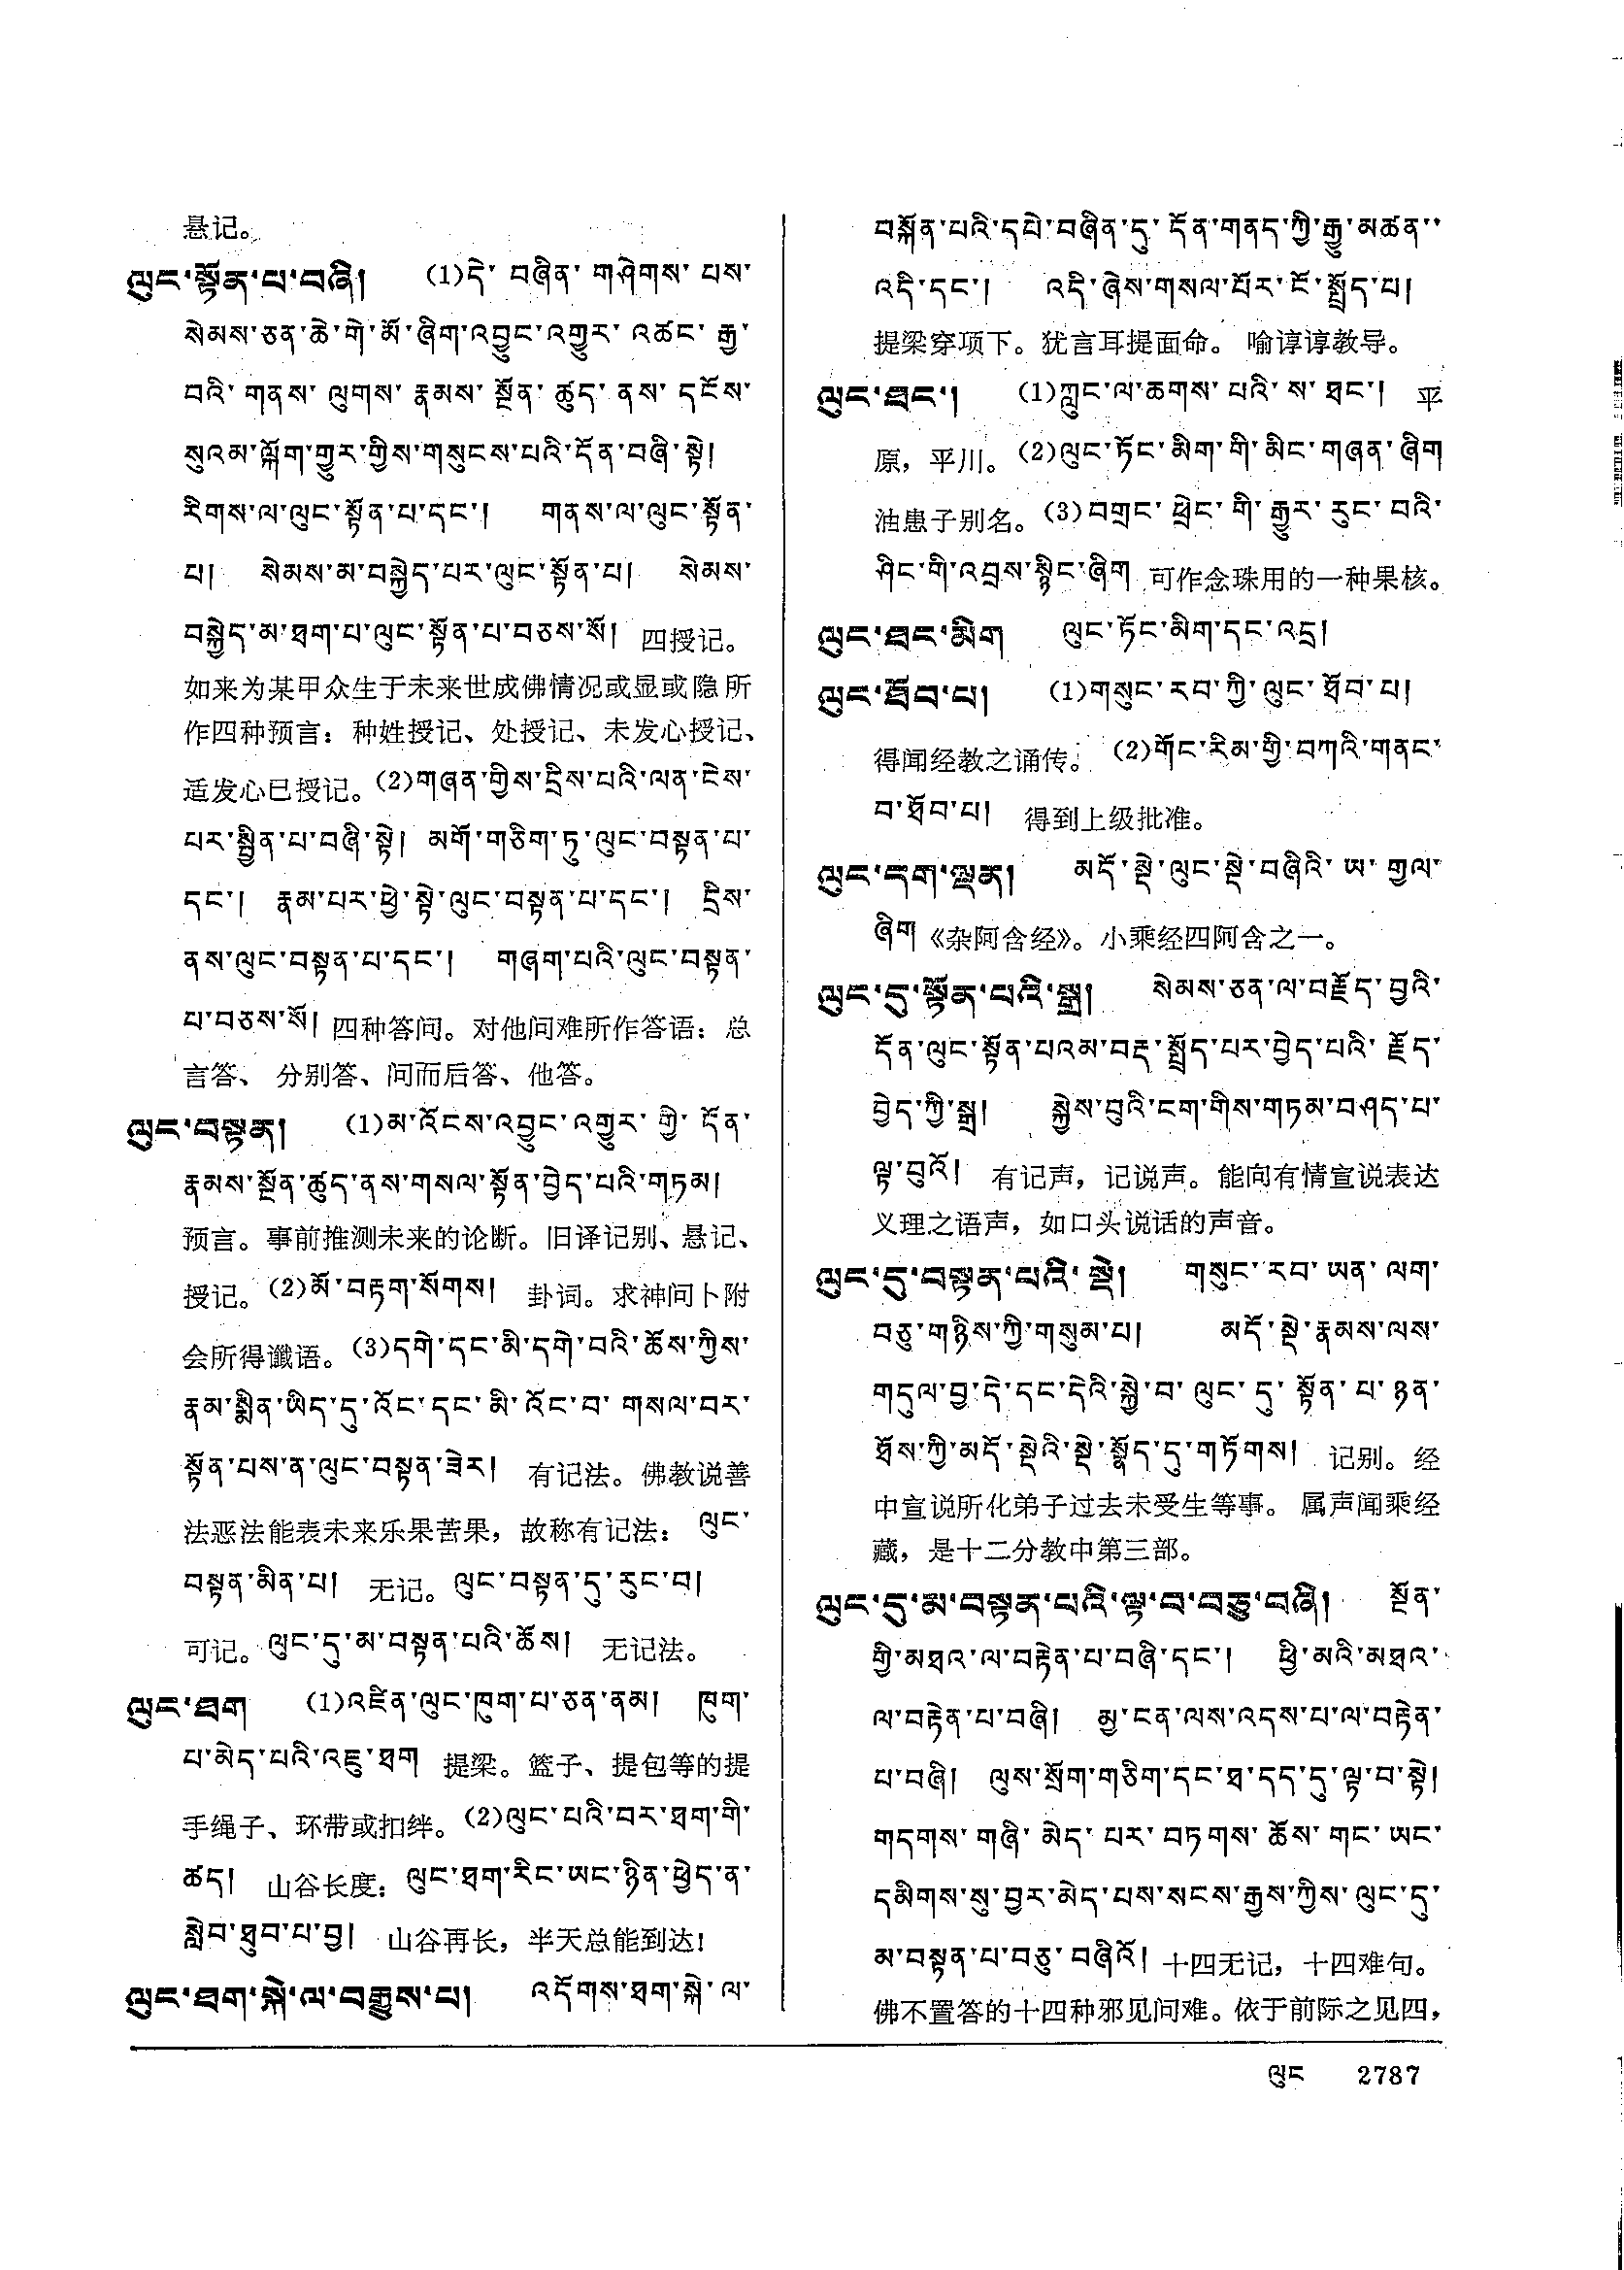 悬记。
ལུང་སྟོན་པ་བཞི། (1)དེ་ བཞིན་ གཤེགས་ པས་
སེམས་ཅན་ཆེ་གེ་མོ་ཞིག་འབྱུང་འགྱུར་ འཚང་ རྒྱ་
བའི་ གནས་ ལུགས་ རྣམས་ སྔོན་ ཚུད་ ནས་ དངོས་
སུའམ་ལྐོག་གྱུར་གྱིས་གསུངས་པའི་དོན་བཞི་སྟེ།
རིགས་ལ་ལུང་སྟོན་པ་དང་། གནས་ལ་ལུང་སྟོན་
པ། སེམས་མ་བསྐྱེད་པར་ལུང་སྟོན་པ། སེམས་
བསྐྱེད་མ་ཐག་པ་ལུང་སྟོན་པ་བཅས་སོ། 四授记。
如来为某甲众生于未来世成佛情况或显或隐所
作四种预言：种姓授记、处授记、未发心授记、
适发心已授记。(2)གཞན་གྱིས་དྲིས་པའི་ལན་ངེས་
པར་སྦྱིན་པ་བཞི་སྟེ། མགོ་གཅིག་ཏུ་ལུང་བསྟན་པ་
དང་། རྣམ་པར་ཕྱེ་སྟེ་ལུང་བསྟན་པ་དང་། དྲིས་
ནས་ལུང་བསྟན་པ་དང་། གཞག་པའི་ལུང་བསྟན་
པ་བཅས་སོ། 四种答问。对他问难所作答语：总
言答、分别答、问而后答、他答。
ལུང་བསྟན། (1)མ་འོངས་འབྱུང་འགྱུར་ གྱི་ དོན་
རྣམས་སྔོན་ཚུད་ནས་གསལ་སྟོན་བྱེད་པའི་གཏམ།
预言。事前推测未来的论断。旧译记别、悬记、
授记。(2)མོ་བརྟག་སོགས། 卦词。求神问卜附
会所得谶语。(3)དགེ་དང་མི་དགེ་བའི་ཆོས་ཀྱིས་
རྣམ་སྨིན་ཡིད་དུ་འོང་དང་མི་འོང་བ་ གསལ་བར་
སྟོན་པས་ན་ལུང་བསྟན་ཟེར། 有记法。佛教说善
法恶法能表未来乐果苦果，故称有记法： ལུང་
བསྟན་མིན་པ། 无记。ལུང་བསྟན་དུ་རུང་བ།
可记。ལུང་དུ་མ་བསྟན་པའི་ཆོས། 无记法。
ལུང་ཐག (1)འཛིན་ལུང་ཁུག་པ་ཅན་ནམ། ཁུག་
པ་མེད་པའི་འཇུ་ཐག 提梁。篮子、提包等的提
手绳子、环带或扣绊。(2)ལུང་པའི་བར་ཐག་གི་
ཚད། 山谷长度：ལུང་ཐག་རིང་ཡང་ཉིན་ཕྱེད་ན་
སླེབ་ཐུབ་པ་བྱ། 山谷再长，半天总能到达！
ལུང་ཐག་སྐེ་ལ་བརྒྱུས་པ། འདོགས་ཐག་སྐེ་ལ་
བསྐོན་པའི་དཔེ་བཞིན་དུ་ དོན་གནད་ཀྱི་རྒྱུ་མཚན་་
འདི་དང་། འདི་ཞེས་གསལ་པོར་ངོ་སྤྲོད་པ།
提梁穿项下。犹言耳提面命。 喻谆谆教导。
ལུང་ཐང་། (1)ཀླུང་ལ་ཆགས་ པའི་ ས་ ཐང་། 平
原，平川。(2)ལུང་ཏོང་མིག་གི་མིང་གཞན་ཞིག
油患子别名。(3)བགྲང་ ཕྲེང་ གི་ རྒྱུར་ རུང་ བའི་
ཤིང་གི་འབྲས་སྙིང་ཞིག 可作念珠用的一种果核。
ལུང་ཐང་མིག ལུང་ཏོང་མིག་དང་འདྲ།
ལུང་ཐོབ་པ། (1)གསུང་རབ་ཀྱི་ལུང་ཐོབ་པ།
得闻经教之诵传。 (2)གོང་རིམ་གྱི་བཀའི་གནང་
བ་ཐོབ་པ། 得到上级批准。
ལུང་དག་ལྡན། མདོ་སྡེ་ལུང་སྡེ་བཞིའི་ ཨ་ གྱལ་
ཞིག 《杂阿含经》。小乘经四阿含之一。
ལུང་དུ་སྟོན་པའི་སྒྲ། སེམས་ཅན་ལ་བརྗོད་བྱའི་
དོན་ལུང་སྟོན་པའམ་བརྡ་སྤྲོད་པར་བྱེད་པའི་ རྗོད་
བྱེད་ཀྱི་སྒྲ། སྐྱེས་བུའི་ངག་གིས་གཏམ་བཤད་པ་
ལྟ་བུའོ། 有记声，记说声。能向有情宣说表达
义理之语声，如口头说话的声音。
ལུང་དུ་བསྟན་པའི་སྡེ། གསུང་ རབ་ ཡན་ ལག་
བཅུ་གཉིས་ཀྱི་གསུམ་པ། མདོ་སྡེ་རྣམས་ལས་
གདུལ་བྱ་དེ་དང་དེའི་སྐྱེ་བ་ ལུང་ དུ་ སྟོན་ པ་ ཉན་
ཐོས་ཀྱི་མདོ་སྡེའི་སྡེ་སྣོད་དུ་གཏོགས། 记别。经
中宣说所化弟子过去未受生等事。 属声闻乘经
藏，是十二分教中第三部。
ལུང་དུ་མ་བསྟན་པའི་ལྟ་བ་བཅུ་བཞི། སྔོན་
གྱི་མཐའ་ལ་བརྟེན་པ་བཞི་དང་། ཕྱི་མའི་མཐའ་
ལ་བརྟེན་པ་བཞི། མྱ་ངན་ལས་འདས་པ་ལ་བརྟེན་
པ་བཞི། ལུས་སྲོག་གཅིག་དང་ཐ་དད་དུ་ལྟ་བ་སྟེ།
གདགས་ གཞི་ མེད་ པར་ བཏགས་ ཆོས་ གང་ ཡང་
དམིགས་སུ་བྱར་མེད་པས་སངས་རྒྱས་ཀྱིས་ ལུང་དུ་
མ་བསྟན་པ་བཅུ་ བཞིའོ། 十四无记，十四难句。
佛不置答的十四种邪见问难。依于前际之见四，
ལུང 2787